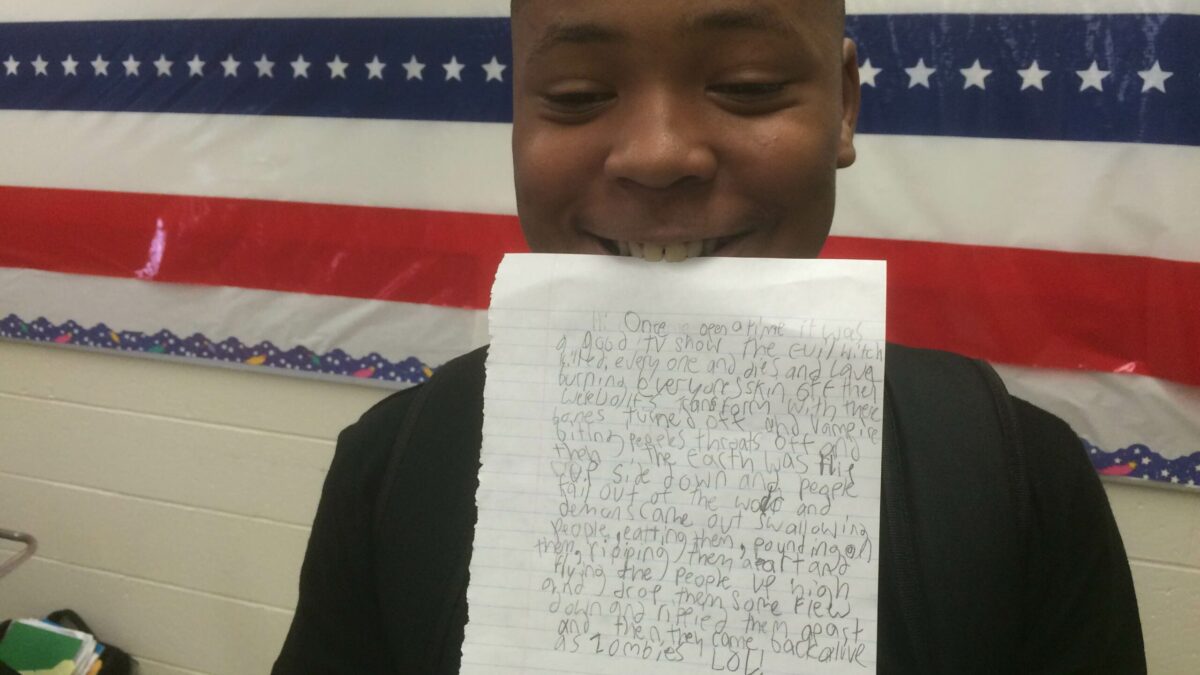 Once open a time it was
a good tv show the evil witch
killed, every one and dies and lava
burning everyones skin off then
transform with there
bones turned off and vampire
biting peoples throats off and
then the Earth was
up side down and people
fall out of the world and
demons came out swallowing
people, eatting them, pounding on
them, ripping them apart and
flying the people up high
and drop them some flew
down and ripped them apart
and then they came back alive
as zombies LOL!